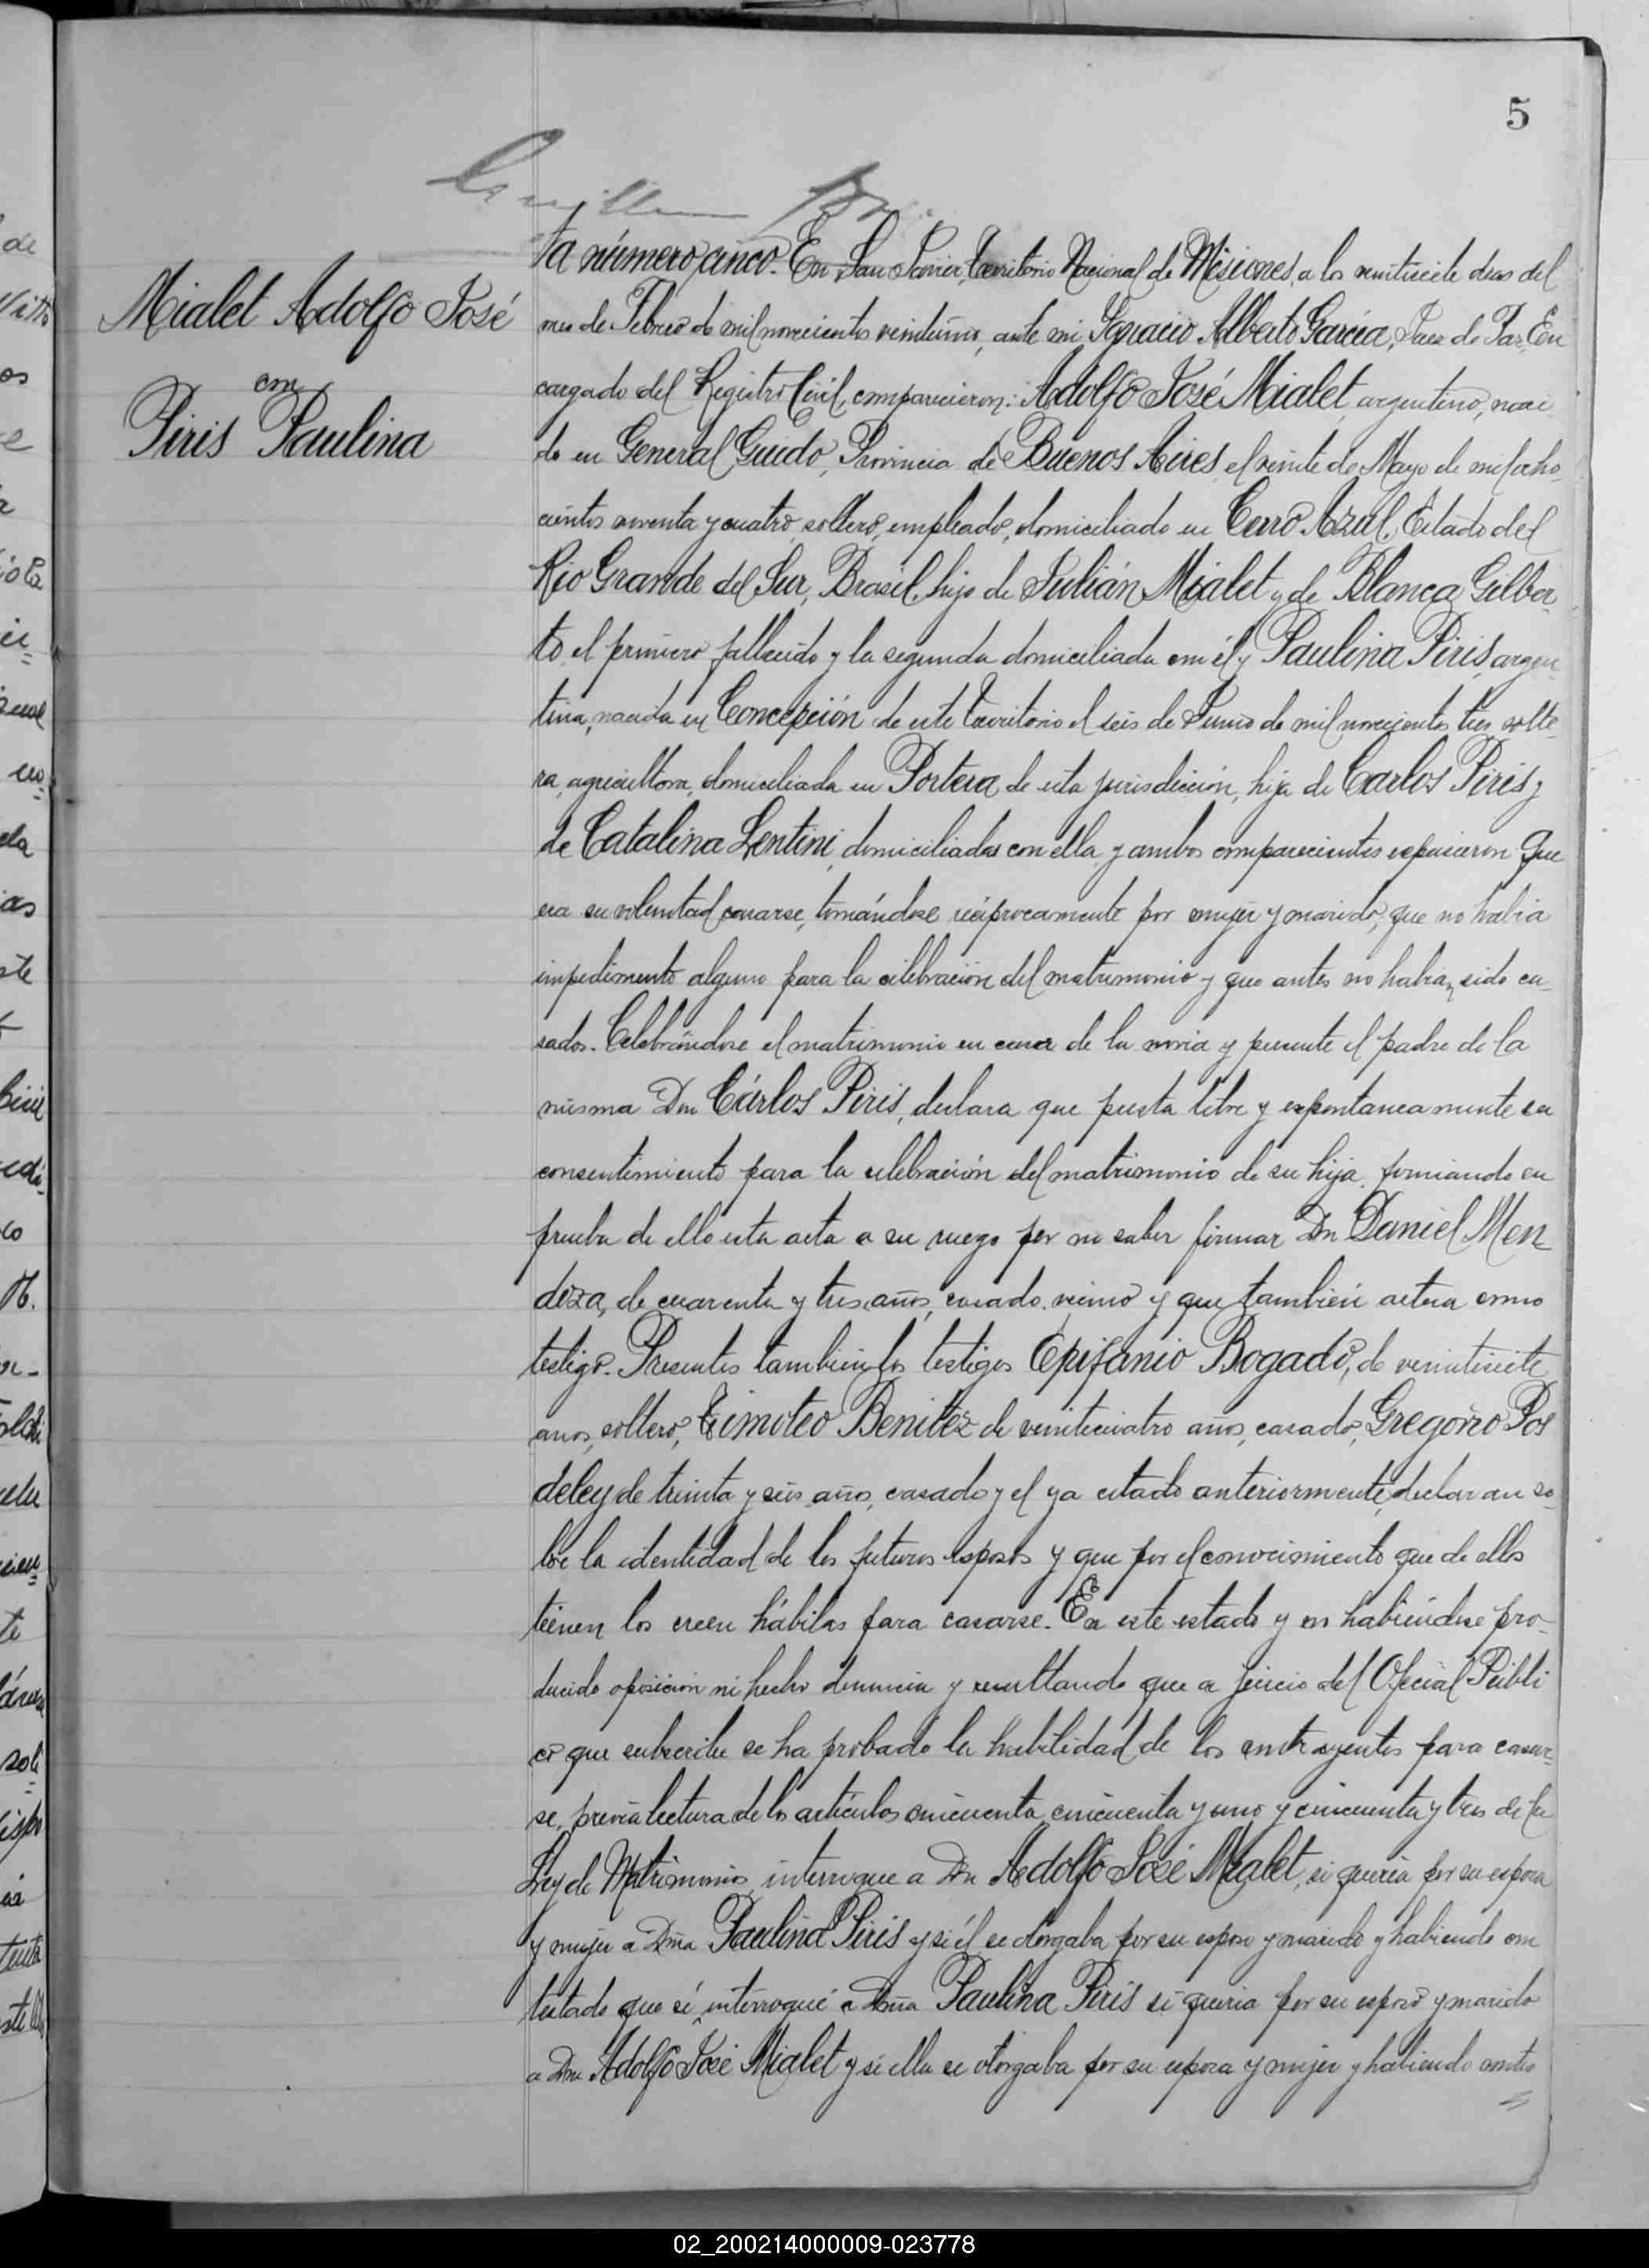 5
Mialet Adolfo José
con
Piris Paulina
ta número cinco. En San Javier, Territorio Nacional de Misiones, a los veintisiete dias del
mes de Febrero de mil novecientos veintiuno, ante mi Ignacio Alberto García, Juez de Paz, En
cargado del Registro Civil, comparecieron: Adolfo José Mialet, argentino, naci
do en General Guido, Provincia de Buenos Aires, el veinte de Mayo de mil ocho
cientos noventa y cuatro, soltero, empleado, domiciliado en Cerro Azul, Estado del
Rio Grande del Sur, Brasil, hijo de Julián Mialet y de Blanca Gilber
to, el primero fallecido y la segunda domiciliada con él y Paulina Piris, argen
tina, nacida en Concepción de este territorio el seis de Junio de mil novecientos tres, solte
ra, agricultora, domiciliada en Portera de esta jurisdicción, hija de Carlos Piris y
de Catalina Lentini, domiciliados con ella y ambos comparecientes expusieron: Que
era su voluntad casarse, tomándose recíprocamente por mujer y marido, que no habia
impedimento alguno para la celebración del matrimonio y que antes no habian sido ca-
sados. Celebrándose el matrimonio en casa de la novia y presente el padre de la
misma Don Cárlos Piris, declara que presta libre y espontaneamente su
consentimiento para la celebración del matrimonio de su hija, firmando en
prueba de ello esta acta a su ruego por no saber firmar Don Daniel Men
doza, de cuarenta y tres años, casado, vecino y que también actua como
testigo. Presentes tambien los testigos Epifanio Bogado, de veintisiete
anos, soltero, Timoteo Benitez de veinticuatro años, casado, Gregorio Pos
deley de treinta y seis años, casado y el ya citado anteriormente, declaran so-
bre la identidad de los futuros esposos y que por el conocimiento que de ellos
tienen los creen hábiles para casarse. En este estado y no habiéndose pro-
ducido oposición ni hecho denuncia y resultando que a juicio del Oficial Públi
co que subscribe se ha probado la habilidad de los contrayentes para casar-
se, previa lectura de los artículos cincuenta, cincuenta y uno y cincuenta y tres de la
Ley de Matrimonio, interrogue a Don Adolfo José Mialet, si queria por su esposa
y mujer a Doña Paulina Piris y si él se otorgaba por su esposo y marido y habiendo con
testado que sí, interrogué a Doña Paulina Piris si queria por su esposo y marido
a Don Adolfo José Mialet y si ella se otorgaba por su esposa y mujer y habiendo contes
02_200214000009-023778